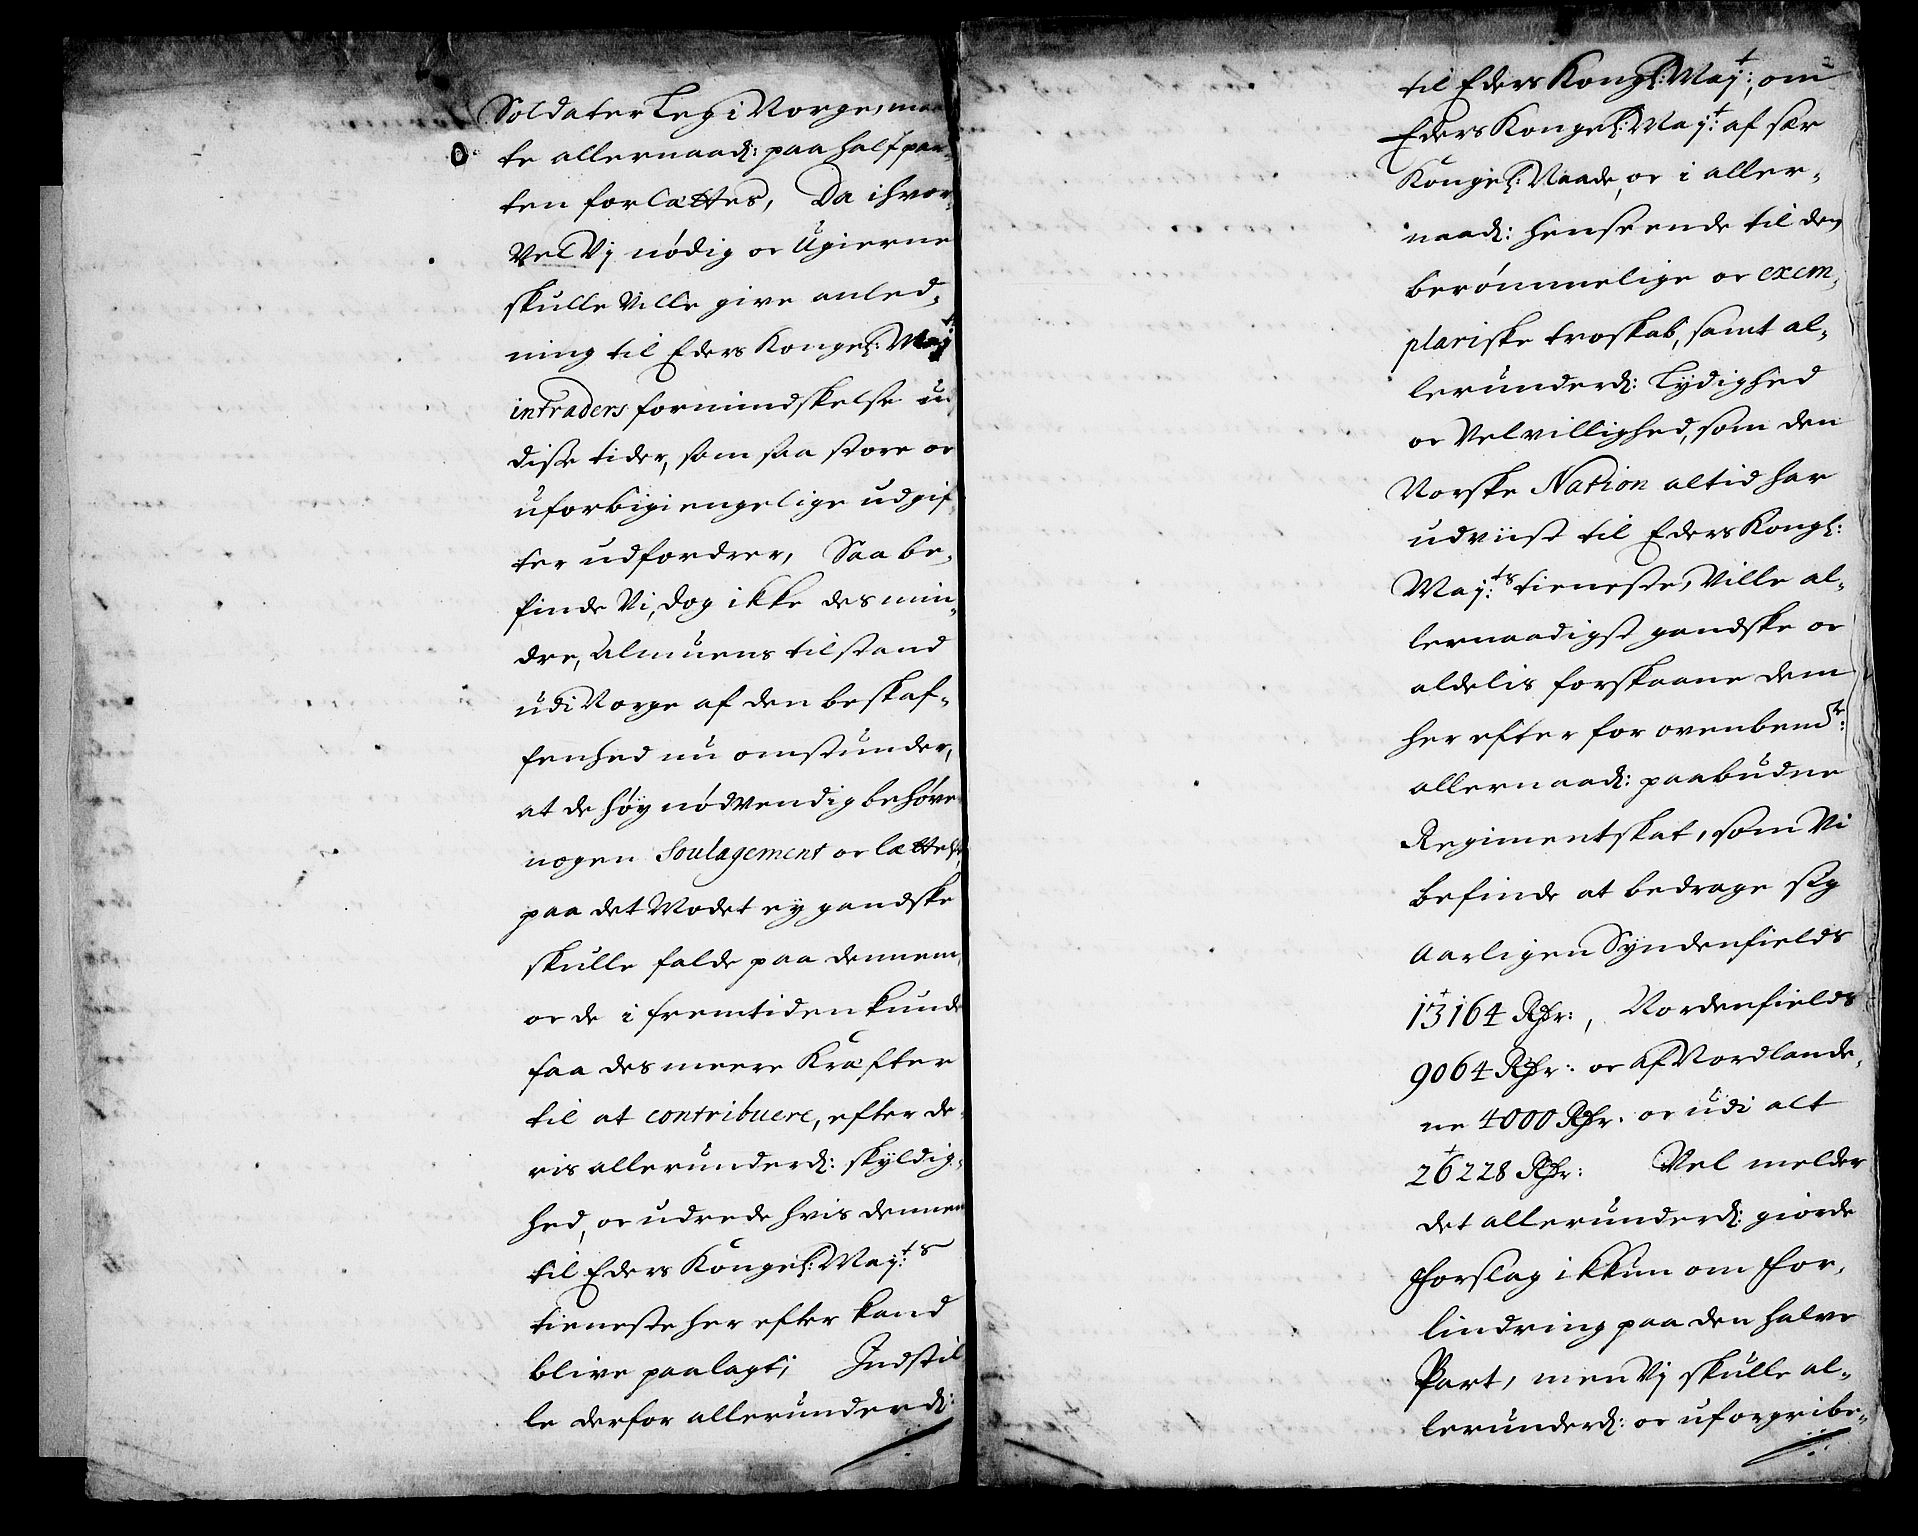 Soldater Leg i Norge, maa
te allernaad: paa half par
ten forlættes, Da ihvor
Vel Vj nødig oc Ugierne
skulle Ville give anled,
ning til Eders Kongel: Maj:t
intraders formindskelse u
disse tider, som saa store oc
uforbigiengelige udgif
ter udfordrer, Saa be,
finde Vi, dog ikke des min,
dre, Almuens tilstand
udi Norge af den beskaf,
fenhed nu omstunder,
at de høy nødvendig behøve
nogen Soulagement oc lættelse,
paa det Modet ey gandske
skulle falde paa dennem,
oc de i fremtiden kunde
faa des meere Kræfter
til at contribuere, efter de,
ris allerunderd: skyldig,
hed, oc udrede hvis dennem
til Eders Kongel: Maj:ts
tieneste her efter kand
blive paalagt; Indstil
le derfor allerunderd:
til Eders Kongl: Maj:t, om
Eders Kongel: Maj:t af sær
Kongel: Naade, oc i aller,
naad: henseende til den
berømmelige oc exem,
plariske troskab, samt al,
lerunderd: Lydighed
oc Velvillighed, som den
Norske Nation altid har
udviist til Eders Kongl:
Maj:ts tieneste, Ville al,
lernaadigst gandske oc
aldelis forskaane dem
her efter for ovenbemte:
allernaad: paabudne
Regimentskat, som Vi
befinde at bedrage sig
Aarligen Syndenfields
13164 Rdr:, Nordenfields
9064 Rdr: oc af Nordlande,
ne 4000 Rdr. oc udi alt
26228 Rdr: Vel melder
det allerunderd: giorde
Forslag ikkun om For,
lindring paa den halve
Part, men Vj skulle al,
lerunderd: oc uforgribe,